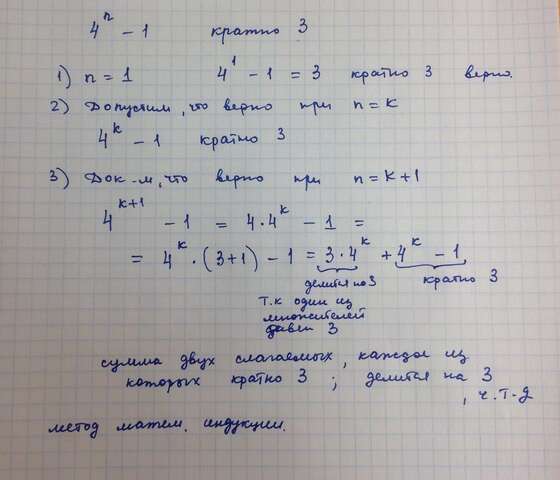 4^n - 1 кратно 3
1) n = 1 4^1 - 1 = 3 кратно 3 верно.
2) Допустим, что верно при n = k
4^k - 1 кратно 3
3) Док-м, что верно при n = k + 1
4^{k+1} - 1 = 4·4^k - 1 =
= 4^k · (3+1) - 1 = 3·4^k + 4^k - 1
делится на 3 кратно 3
т.к один из
множителей
равен 3
сумма двух слагаемых, каждое из
которых кратно 3 ; делится на 3
, ч.т.д
метод матем. индукции.